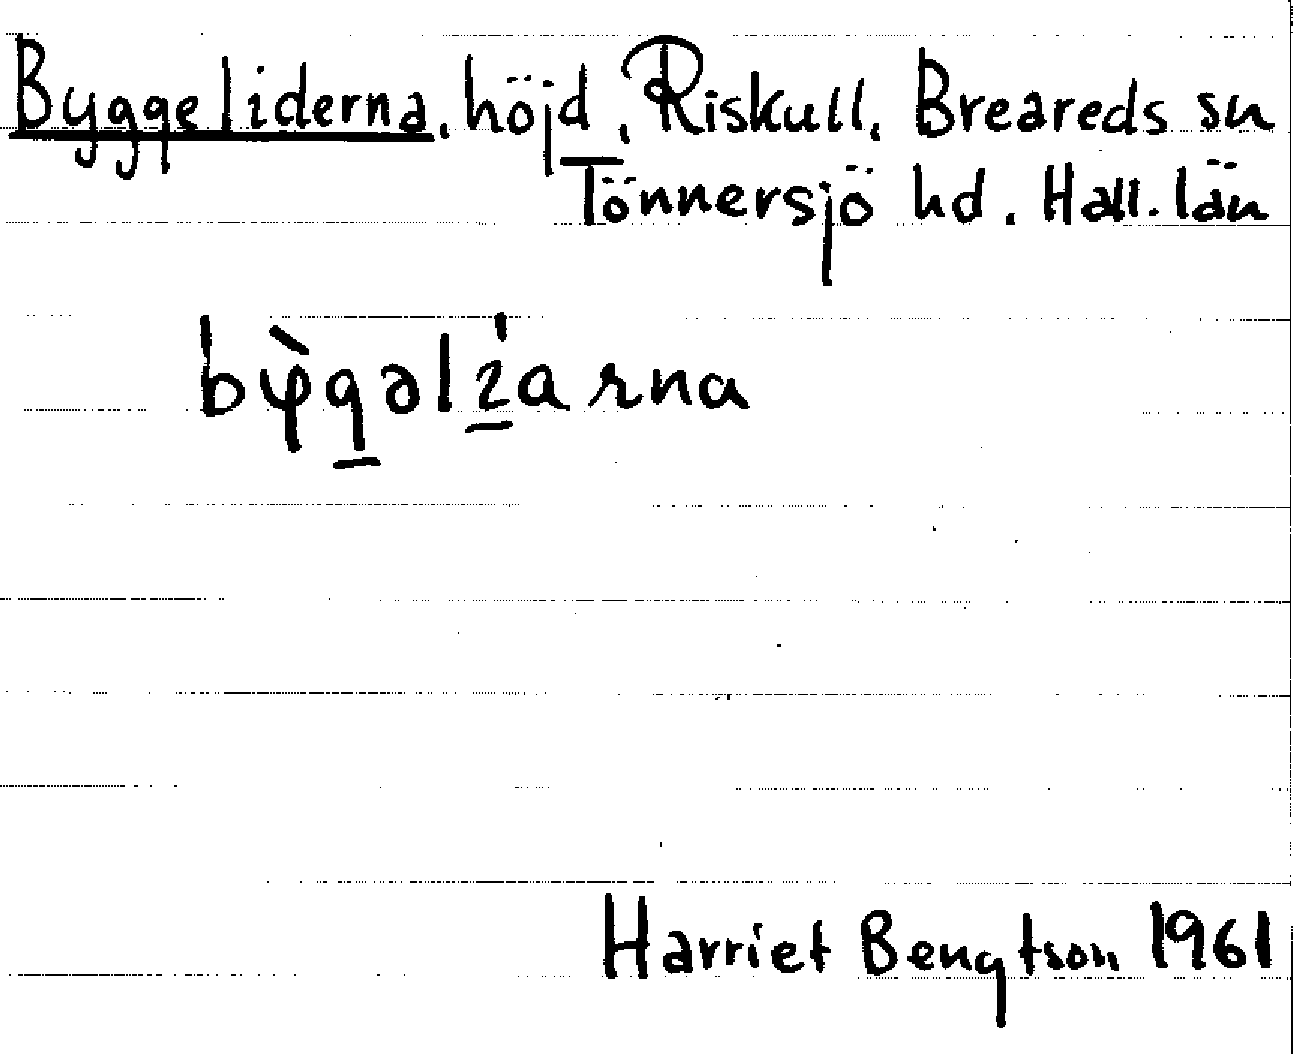 Byggeliderna, höjd, Riskull, Breareds sn
Tönnersjö hd. Hall. län
bỳgəlíarna
Harriet Bengtson 1961